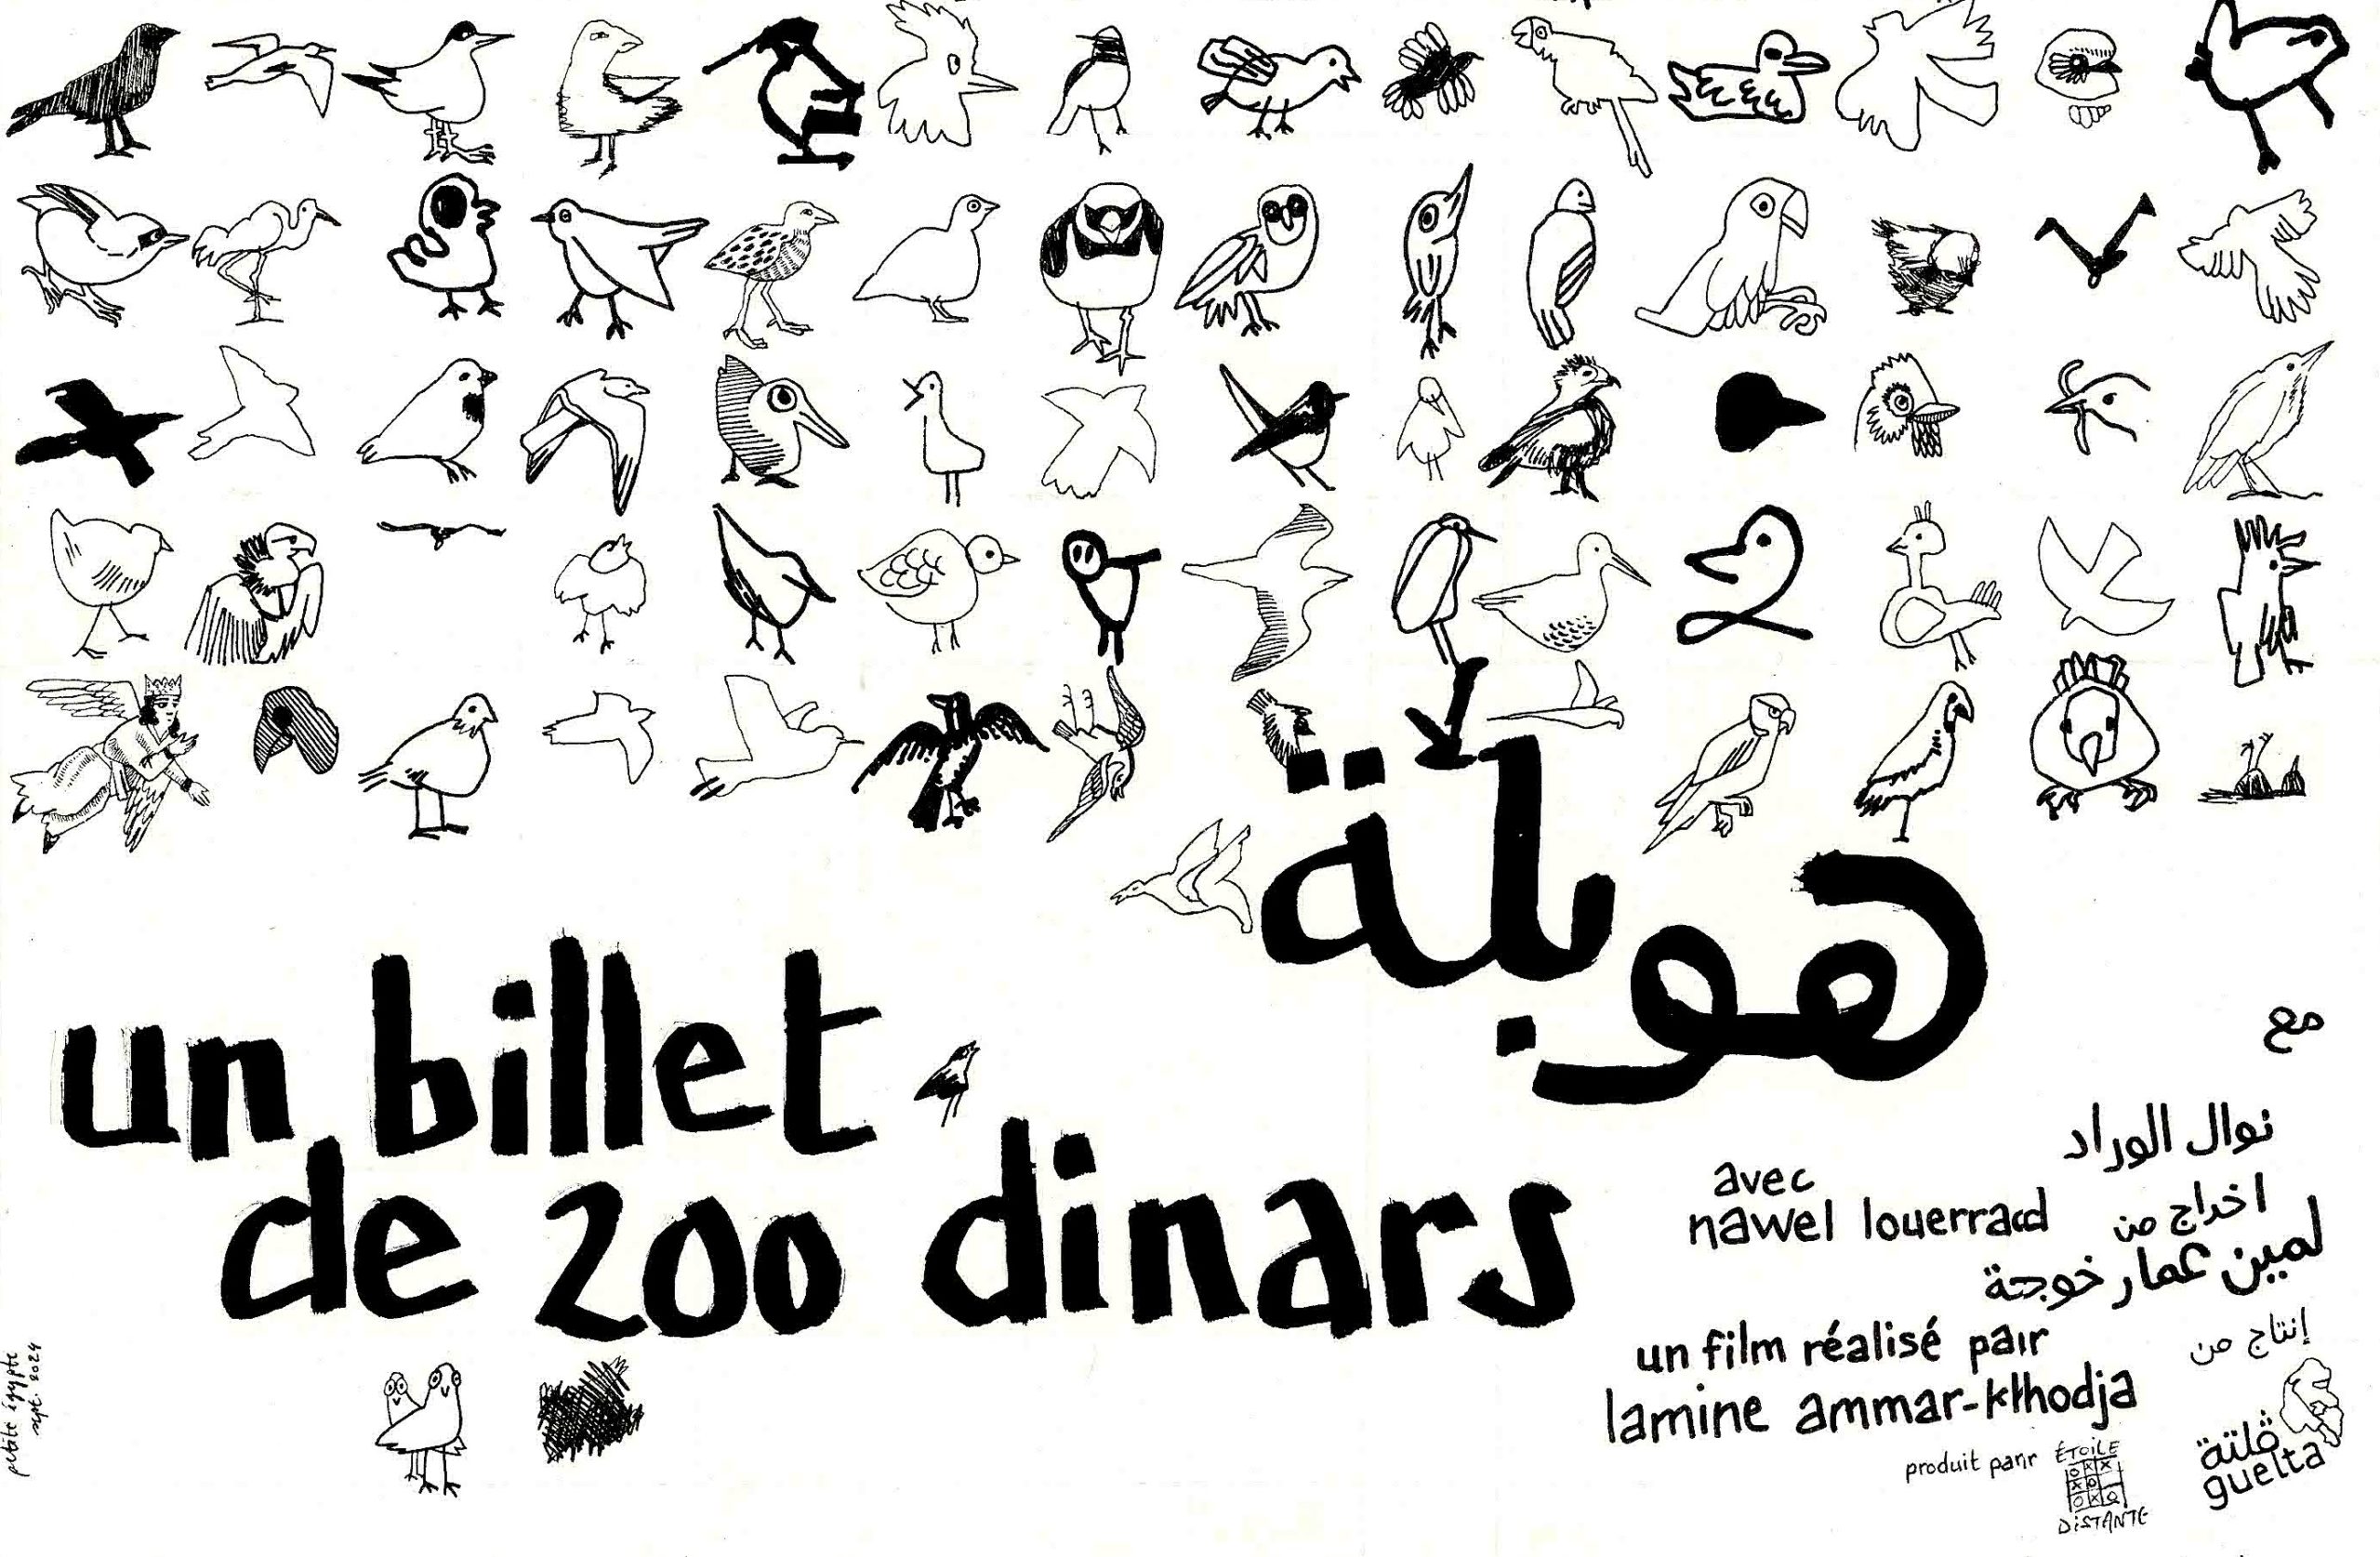 هوبلة
un billet
de 200 dinars
مع
نوال الوراد
avec
nawel louerrad
اخراج من
لمين عمار خوجة
un film réalisé par
lamine ammar-khodja
إنتاج من
produit par
ÉTOILE
DISTANTE
ڤلتة
guelta
petite égypte
sept. 2024